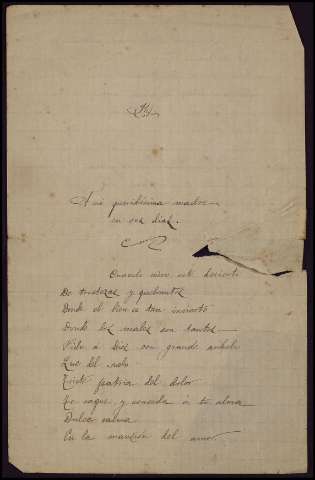 A mi queridísima madre
en sus días.
Cuando miro este desierto
De tristezas y quebrantos
Donde el bien es tan incierto
Donde los males son tantos
Pido á Dios con grande anhelo
Que del suelo
Triste patria del dolor
Te saque, y conceda á tu alma
Dulce calma
En la mansión del amor